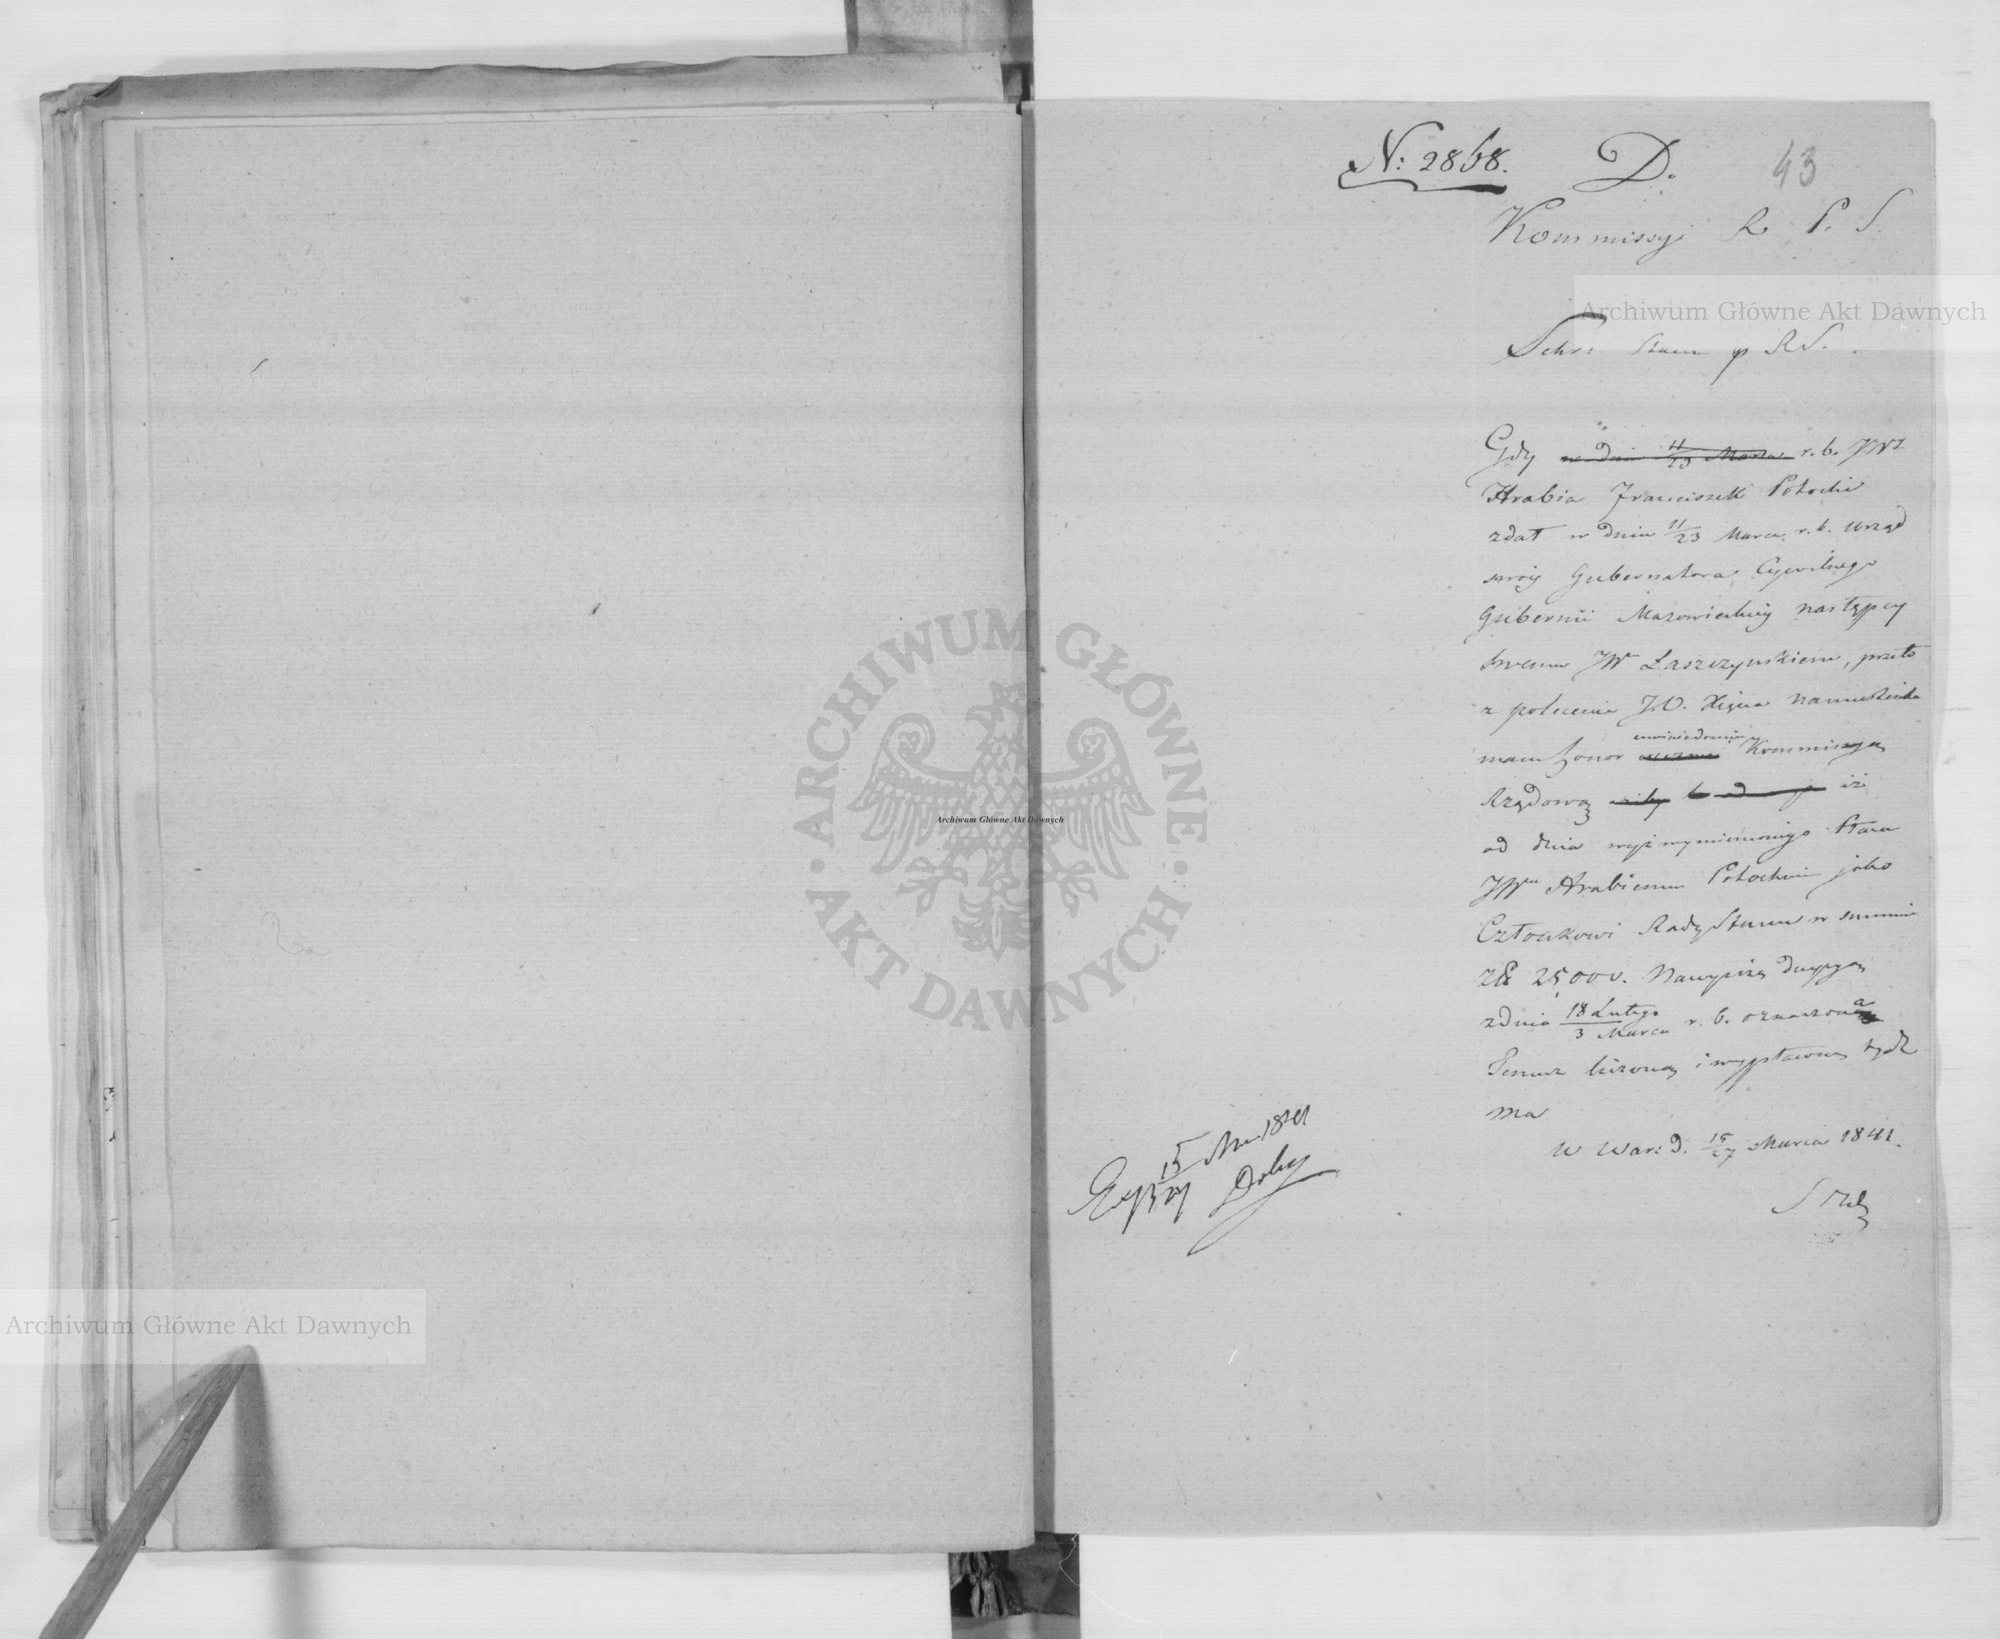 N: 2868. D. 43
Kommissyi R. P. S.
Sekr: Stanu p RS.
Gdy w dniu 11/23 Marca r. b. JWy
Hrabia Franciszek Potocki
zdał w dniu 11/23 Marca r. b. Urząd
swój Gubernatora Cywilnego
Gubernii Mazowieckiej następcy
swemu JW Łaszczyńskiemu, przeto
z polecenia J.O. Xięcia Namiestnika
mam honor uwiadomić Kommissyą
Rządową iż
od dnia wyż wymienionego Płaca
JWmu Hrabiemu Potockiemu jako
Członkowi Rady Stanu w summie
Zł 25,000. Najwyższą decyzyą
z dnia 18 Lutego/3 Marca r. b. oznaczona
liczoną i wypłacaną bydź
ma
W War: d. 15/27 Marca 1841.
15 Mar 1841
Exp
Archiwum Główne Akt Dawnych
Archiwum Główne Akt Dawnych
Archiwum Główne Akt Dawnych
· ARCHIWUM GŁÓWNE · AKT DAWNYCH